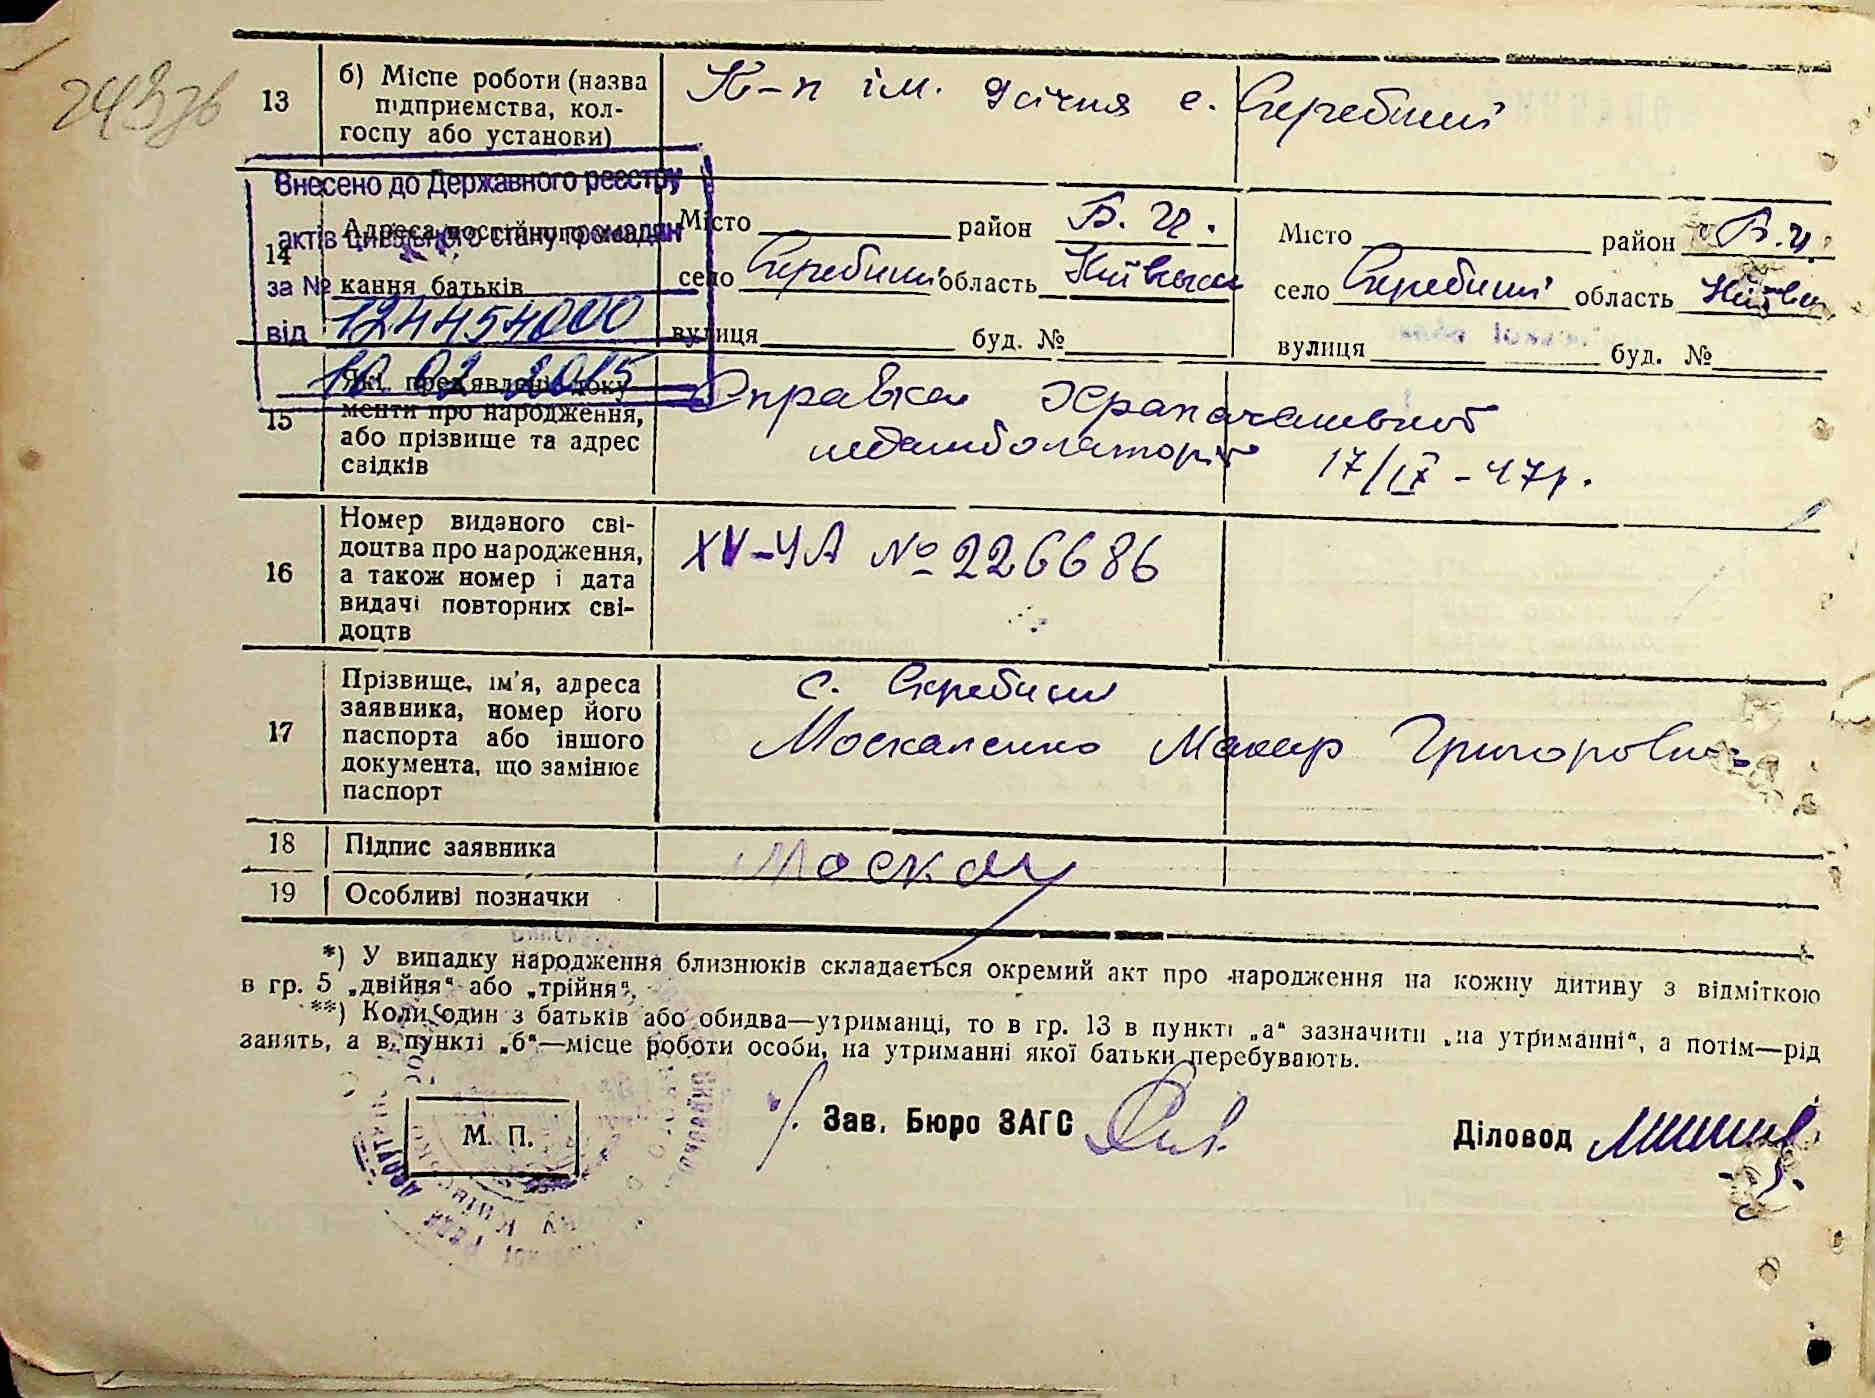 13
б) Місце роботи (назва
підприємства, кол-
госпу або установи)
К-п ім. 9 січня с. Скребиші
Внесено до Державного реєстру
актів цивільного стану громадян
за №
від
124454000
10 02 2015
14
Адреса постійного
кання батьків
Місто район Б. Ц.
село Скребиші область Київськ
вулиця буд. №
Місто район Б. Ц.
село Скребиші область Київськ
вулиця буд. №
15
Які пред'явлені доку
менти про народження,
або прізвище та адрес
свідків
Справка
17/IX - 47р.
16
Номер виданого сві-
доцтва про народження,
а також номер і дата
видачі повторних сві-
доцтв
XV-ЧА № 226686
17
Прізвище, ім'я, адреса
заявника, номер його
паспорта або іншого
документа, що замінює
паспорт
с. Скребиші
Москаленко Макар Григорович
18
Підпис заявника
Москал
19
Особливі позначки
*) У випадку народження близнюків складається окремий акт про народження на кожну дитину з відміткою
в гр. 5 „двійня“ або „трійня“.
**) Коли один з батьків або обидва—утриманці, то в гр. 13 в пункті „а“ зазначити „на утриманні“, а потім—рід
занять, а в пункті „б“—місце роботи особи, на утриманні якої батьки перебувають.
М. П.
Зав. Бюро ЗАГС
Діловод